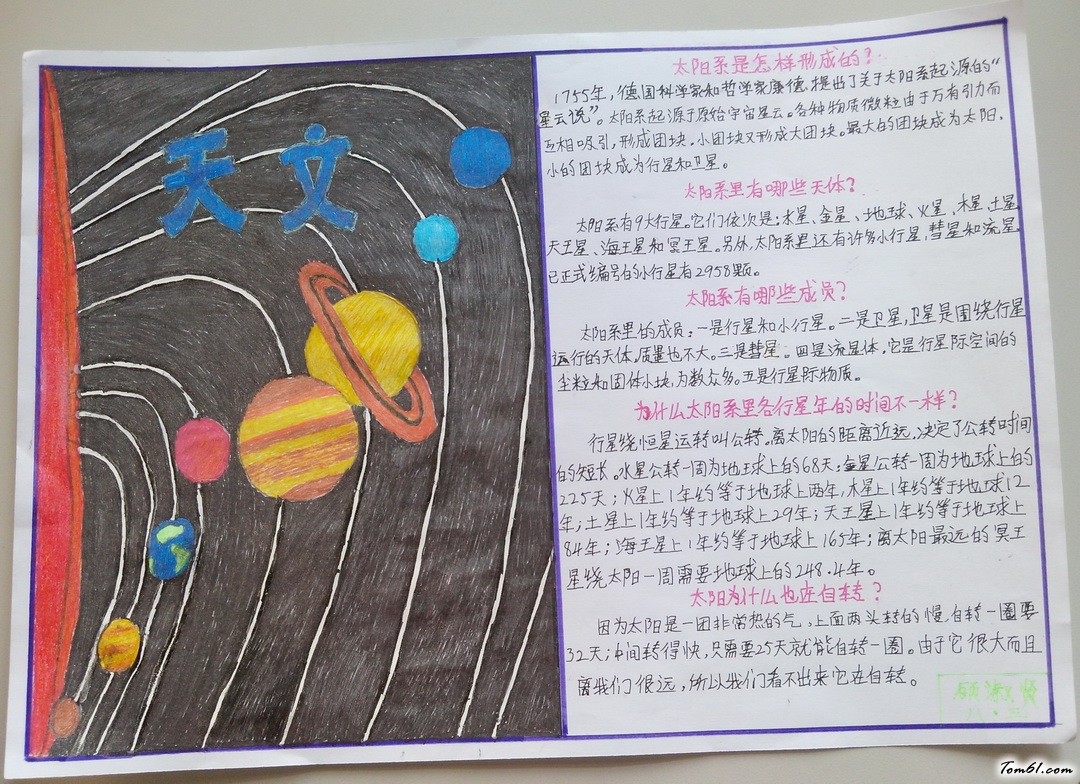 天文
太阳系是怎样形成的？
1755年，德国科学家和哲学家康德提出了关于太阳系起源的“
星云说”。太阳系起源于原始宇宙星云。各种物质微粒由于万有引力而
互相吸引，形成团块。小团块又形成大团块。最大的团块成为太阳，
小的团块成为行星和卫星。
太阳系里有哪些天体？
太阳系有9大行星。它们依次是：水星、金星、地球、火星、木星、土星、
天王星、海王星和冥王星。另外，太阳系里还有许多小行星，彗星和流星。
已正式编号的小行星有2958颗。
太阳系有哪些成员？
太阳系里的成员：一是行星和小行星。二是卫星，卫星是围绕行星
运行的天体，质量也不大。三是彗星。四是流星体，它是行星际空间的
尘粒和固体小块，为数众多。五是行星际物质。
为什么太阳系里各行星年的时间不一样？
行星绕恒星运转叫公转。离太阳的距离近远，决定了公转时间
的短长。水星公转一周为地球上的68天；金星公转一周为地球上的
225天；火星上1年约等于地球上两年，木星上1年约等于地球12
年；土星上1年约等于地球上29年；天王星上1年约等于地球上
84年；海王星上1年约等于地球上165年；离太阳最远的冥王
星绕太阳一周需要地球上的248.4年。
太阳为什么也在自转？
因为太阳是一团非常热的气，上面两头转的慢，自转一圈要
32天；中间转得快，只需要25天就能自转一圈。由于它很大而且
离我们很远，所以我们看不出来它在自转。
八.三
Tom61.com